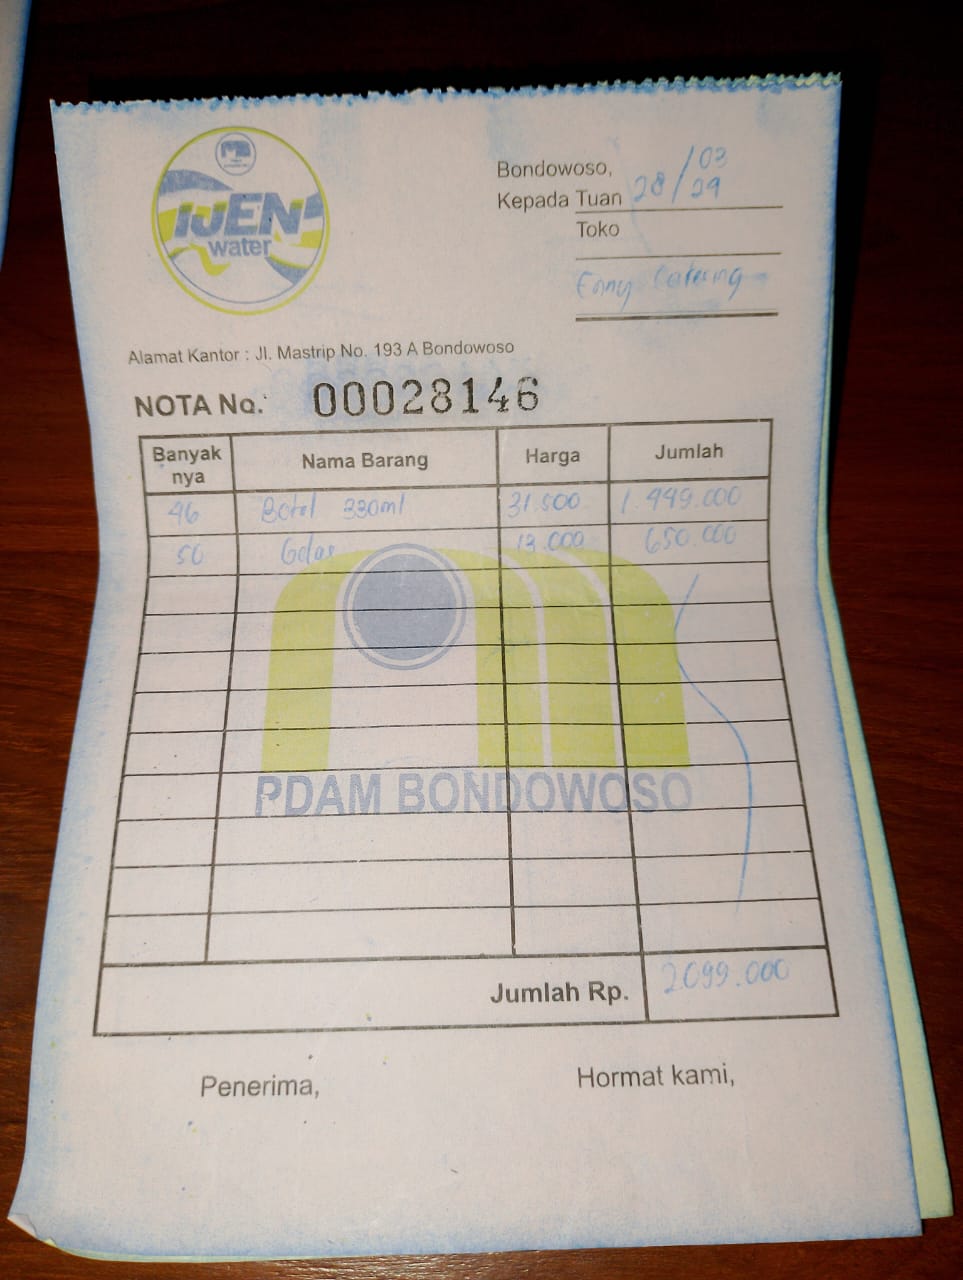 IJEN
water
Bondowoso,
28/03
29
Kepada Tuan
Toko
Enny Catering
Alamat Kantor : Jl. Mastrip No. 193 A Bondowoso
NOTA No. 00028146
Banyak nya Nama Barang Harga Jumlah
46 Botol 330ml 31.500 1.449.000
50 Gelas 13.000 650.000
PDAM BONDOWOSO
Jumlah Rp. 2099.000
Penerima, Hormat kami,